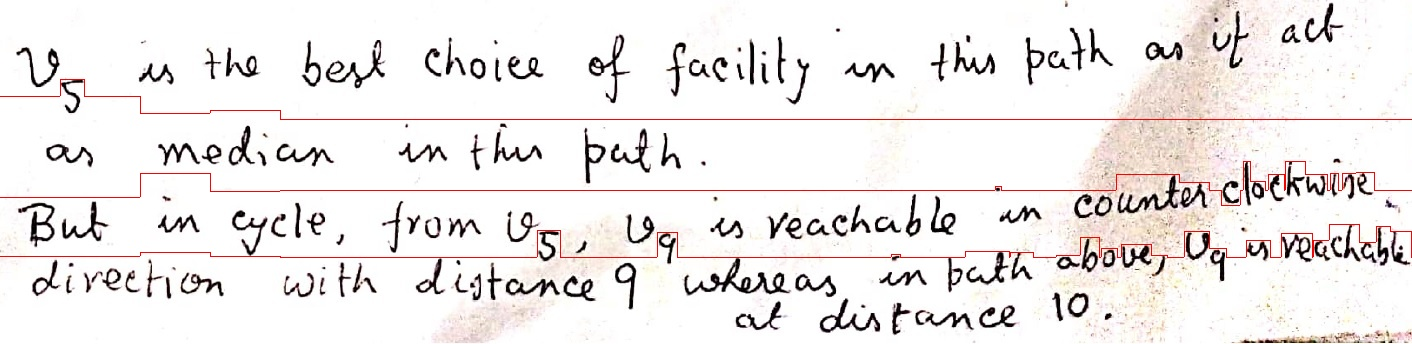 v₅ is the best choice of facility in this path as it act
as median in this path.
But in cycle, from v₅, v₉ is reachable in counter clockwise
direction with distance 9 whereas in path above, v₉ is reachable
at distance 10.